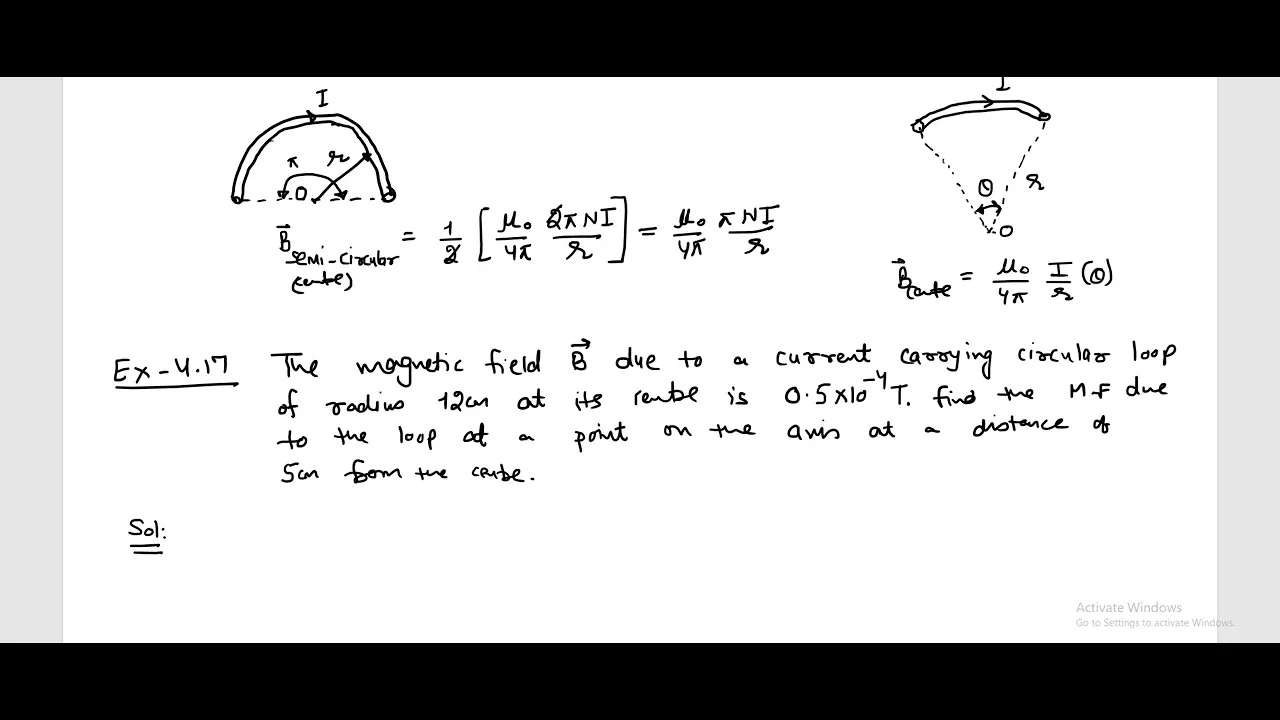 I
π r
O
B⃗ semi-circular (centre) = 1/2 [ μ₀/4π 2πNI/r ] = μ₀/4π πNI/r
I
θ r
O
B⃗ centre = μ₀/4π I/r (θ)
Ex-4.17 The magnetic field B⃗ due to a current carrying circular loop
of radius 12cm at its centre is 0.5×10⁻⁴ T. find the M.F due
to the loop at a point on the axis at a distance of
5cm from the centre.
Sol:
Activate Windows
Go to Settings to activate Windows.